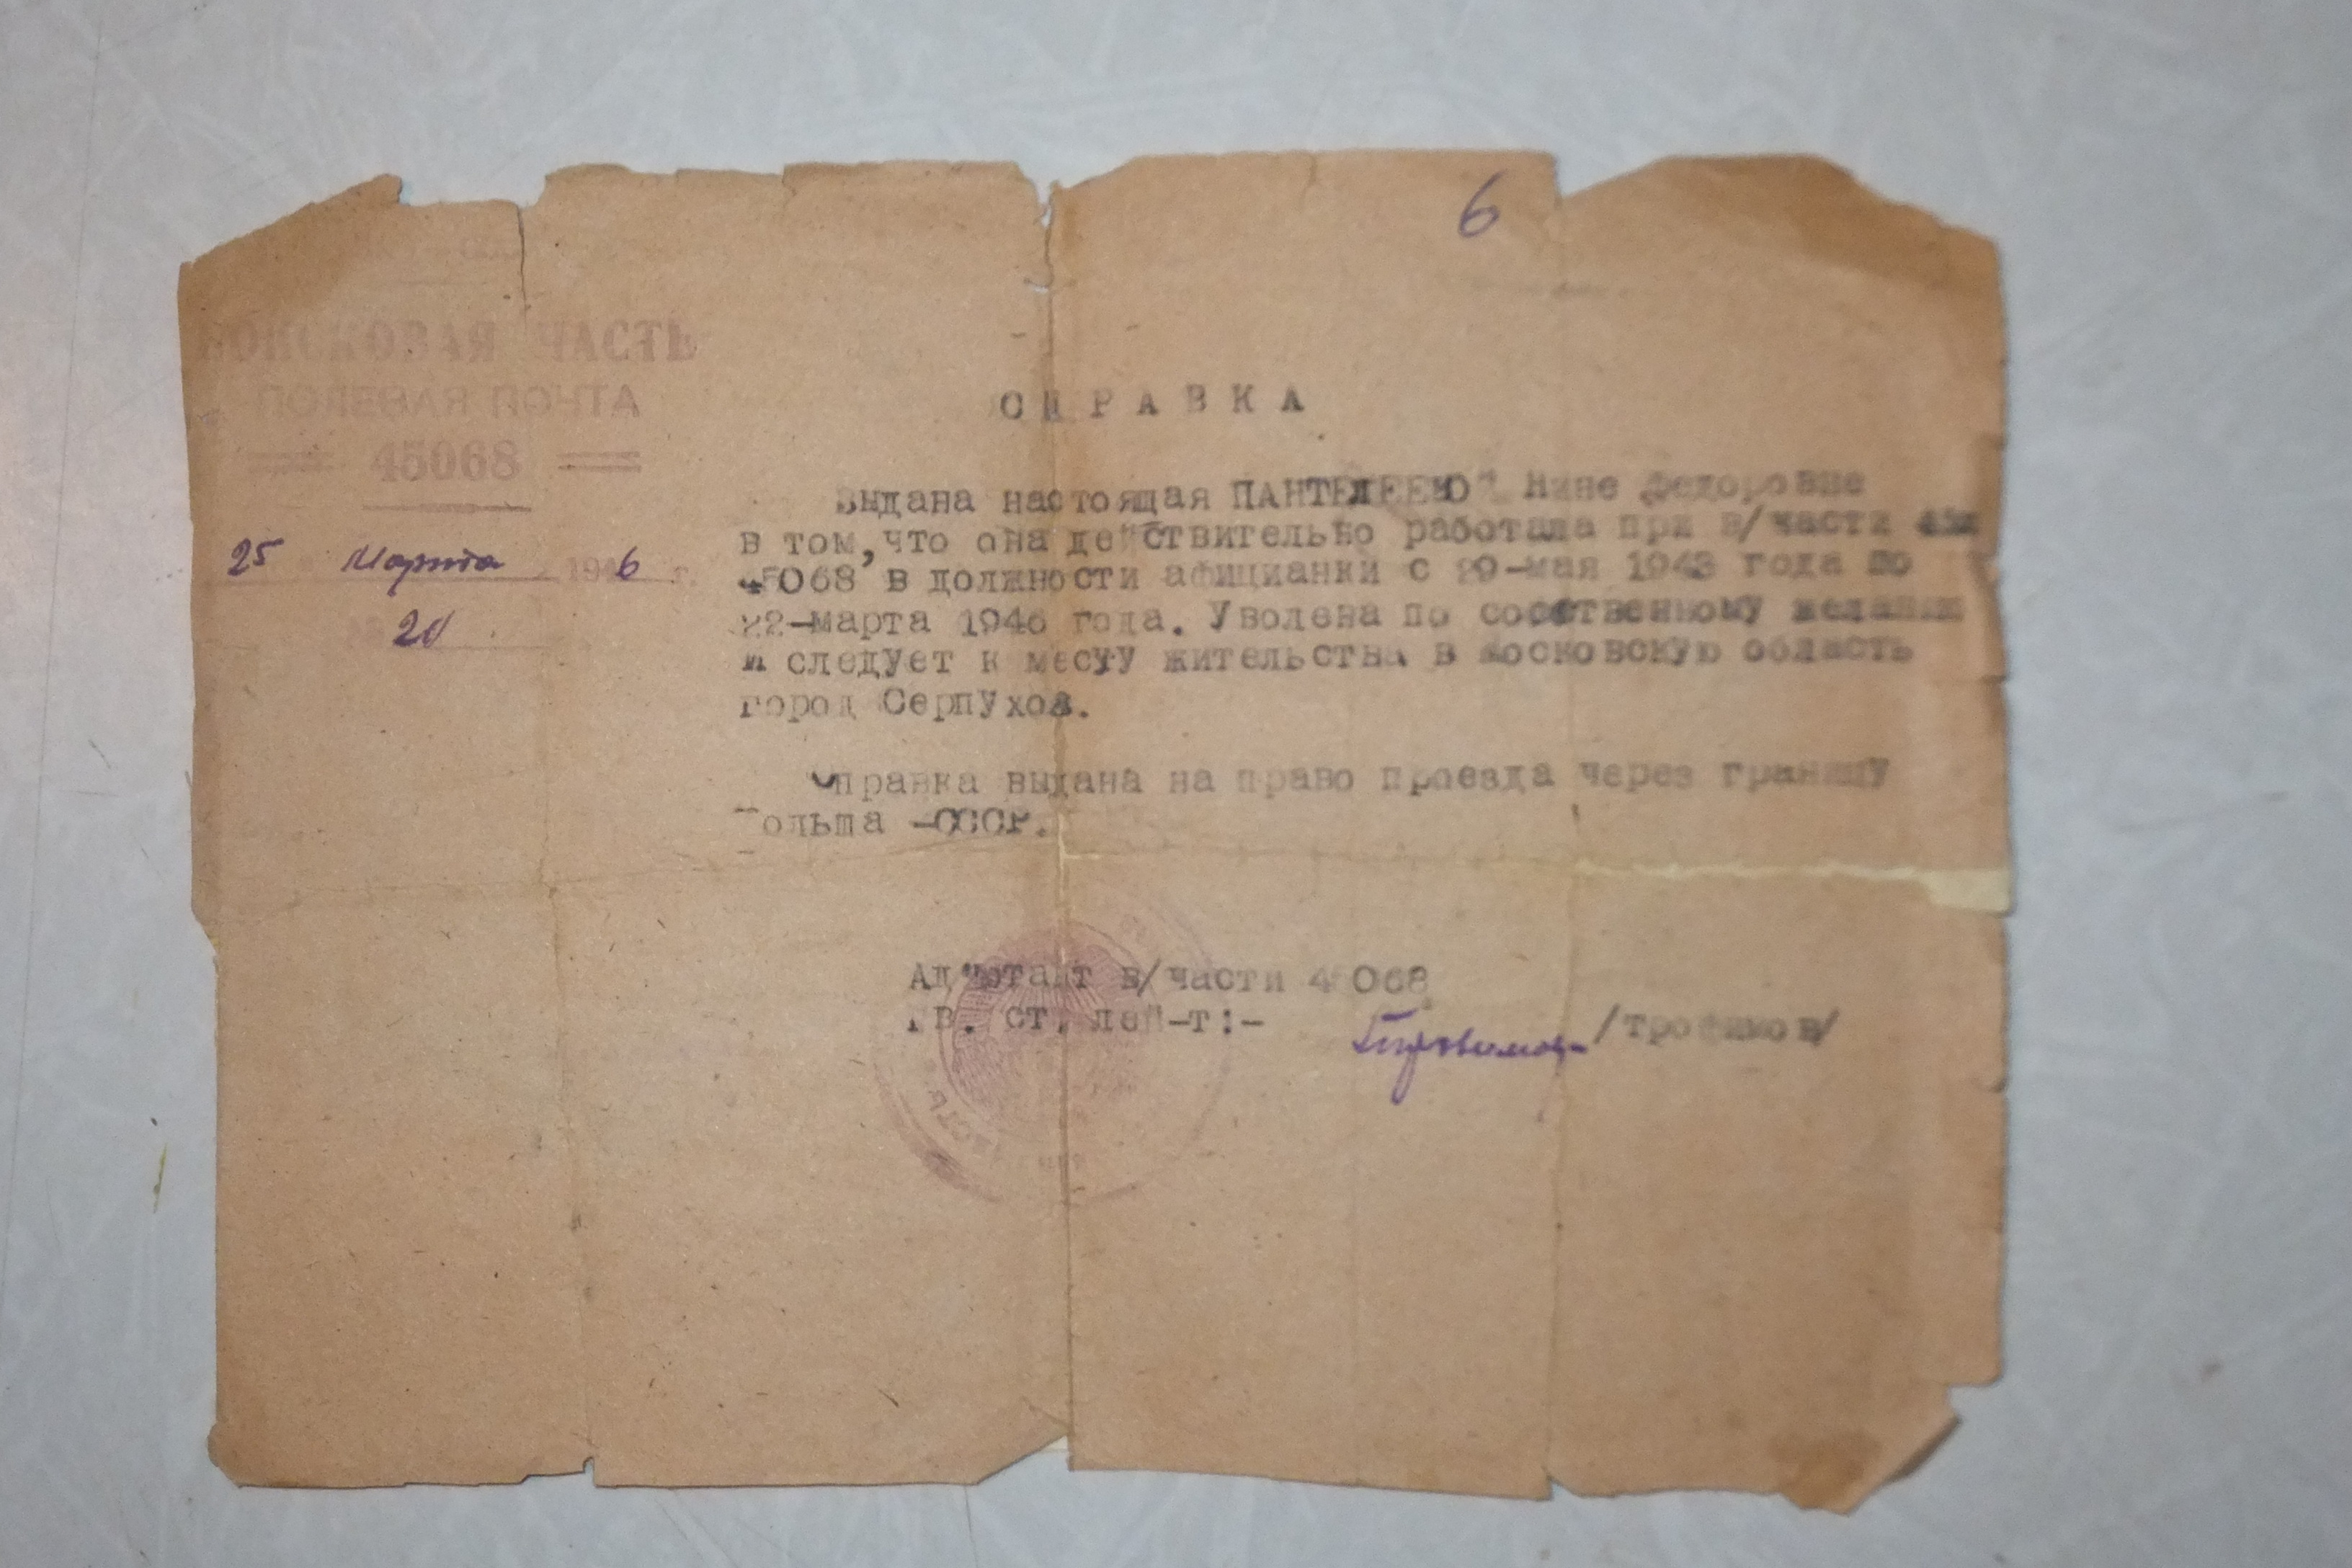 6
ВОЙСКОВАЯ ЧАСТЬ
ПОЛЕВАЯ ПОЧТА
45068
25 Марта 1946 г.
20
СПРАВКА
Выдана настоящая ПАНТЕЛЕЕВОЙ Нине Федоровне
в том, что она действительно работала при в/части
45068 в должности афицианки с 29-мая 1943 года по
22-марта 1946 года. Уволена по собственному желании
и следует к месту жительства в Московскую область
город Серпухов.
Справка выдана на право проезда через границу
Польша -СССР.
Адъютант в/части 45068
гв. ст. лей-т:- /Трофимов/